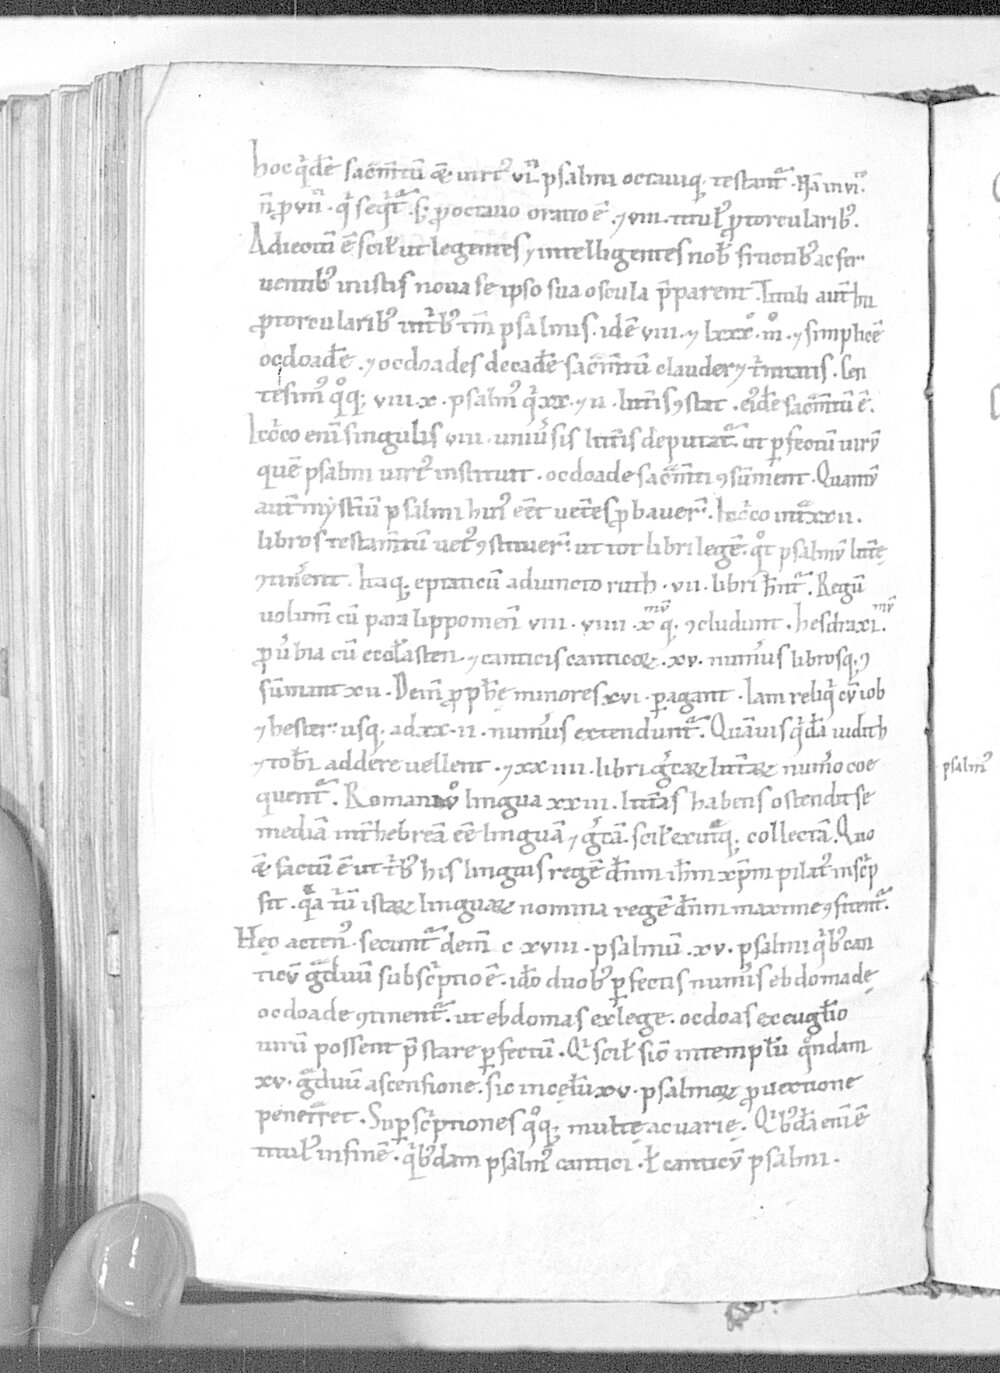 hoc q̇dē sac̄mtū & uirt᷒ VI psalmi octauiq; testant᷑. Nā in VI.
n̄ ꝓ VII. qͥ seqt᷑. s; ꝓ octauo oratio ē. ⁊ VIII. titul᷒ ꝓ torcularib᷒.
Adiectū ē scił ut legentes ⁊ intelligentes nob̄ fruentib᷒ ac fer
uentib᷒ in istis noua se ipso sua oscula p̄parent. Tituli aut̄ hui
ꝓ torcularib᷒ int̄b᷒ tm̄ psalmis. idē VIII. ⁊ LXXXº. IIIº. ⁊ simplicē
ocdoadē. ⁊ ocdoades decadē sac̄mtū clauder& t̄nitatis. Cen
tesim᷒ qºq; VIII. X. psalm᷒ qͥ XX. ⁊ II. litt̄is ꝯstat. ei᷒dē sac̄mtū ē.
Iccͦco enī singulis VIII. uniuˀsis litt̄is deputat᷑. ut ꝑfectū uirū
quē psalmi uirt᷒ instituit. ocdoade sac̄mti ꝯsūment. Quamū
aut̄ myst̄iū psalmi hui᷒ eēt uet̄es ꝓbaver̄. Iccͦco int̄a XXII.
libros testam̄tū uet᷒ ꝯstituer̄. ut tot libri legē. qͦt psalmū litt̄ę
ꝯtinēnt. Itaq; eptaticū adiuncto ruth. VII. libri hn̄t᷑. Regū
uolum̄ cū paralippomen̄ VIII. VIIII. X mū q; ꝯcludunt. hesdra XI. mū
ꝓuˀbia cū ecclˀasten. ⁊ canticis canticoꝝ. XV. numˀus librosq; ꝯ
sūmant XII. Dein̄ ꝓph̄ę minores XVI. ꝑagant. Iam reliqͥ cū iob
⁊ hester usq; ad XX. II. numˀus extendunt᷑. Quāuis qͥdā iudith
⁊ tob̄i addere uellent. ⁊ XXIIII. libri gͨcaꝝ litt̄aꝝ numˀo coe
quent᷑. Romana uº lingua XXIII. litt̄as habens ostendit se
mediā int̄ hebreā eē linguā ⁊ gͨcā. scił ex utͣq; collectā. Quo
& factū ē ut t̄b᷒ his linguis regē dn̄m ih̄m xp̄m pilat᷒ inscͥp
sit. qͥa t̄iū istaꝝ linguaꝝ nomina regē dn̄m maxime ꝯfitent᷑.
Hęc acten᷒. secunt᷑ dein̄ C XVIII. psalmū. XV. psalmi qͥb᷒ can
ticū gͣduū subscͥptio ē. idō duob᷒ ꝑfectis numˀis ebdomadę
ocdoade ꝯtinent᷑. ut ebdomas ex lege. ocdoas ex euglˀio
uirū possent p̄stare ꝑfectū. Qͥ scił sic̄ in templˀū qͦndam
XV. gͣduū ascensione. sic in cęlˀū XV. psalmoꝝ ꝓuectione
penetͣret. Supscͥptiones qºq; multę ac uarię. Qͥb᷒dā enī ē
titul᷒ in finē. qͥb᷒dam psalm᷒ cantici. ł canticū psalmi.
psalm᷒